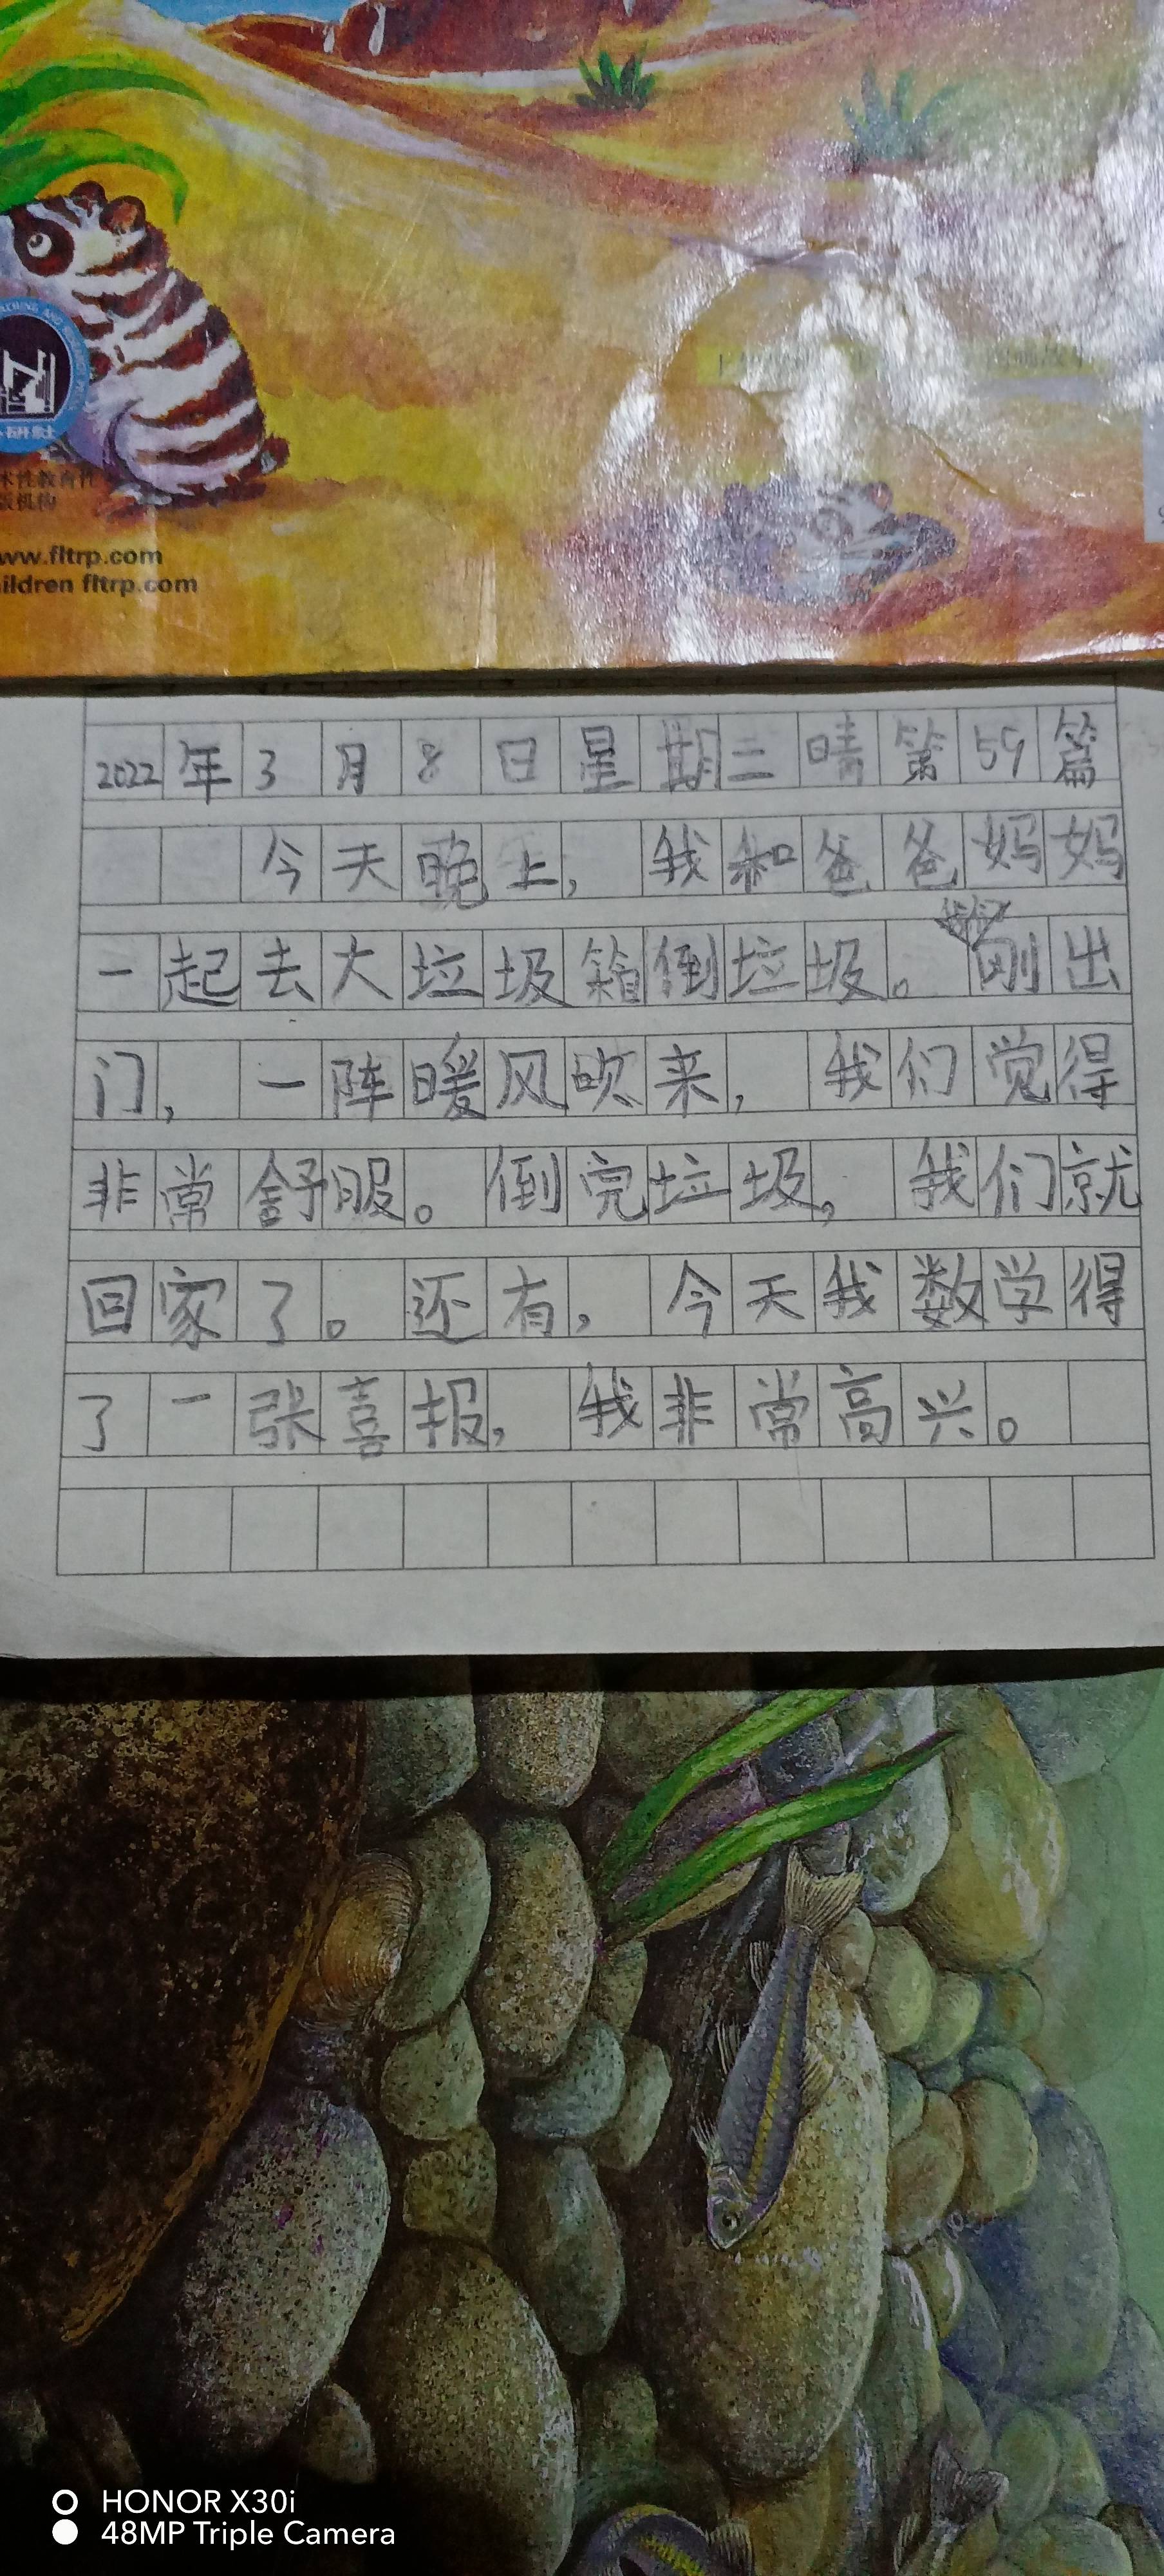 ww.fltrp.com
ildren fltrp.com
2022年3月8日星期二晴第59篇
今天晚上，我和爸爸妈妈
一起去大垃圾箱倒垃圾。刚出
门，一阵暖风吹来，我们觉得
非常舒服。倒完垃圾，我们就
回家了。还有，今天我数学得
了一张喜报，我非常高兴。
HONOR X30i
48MP Triple Camera